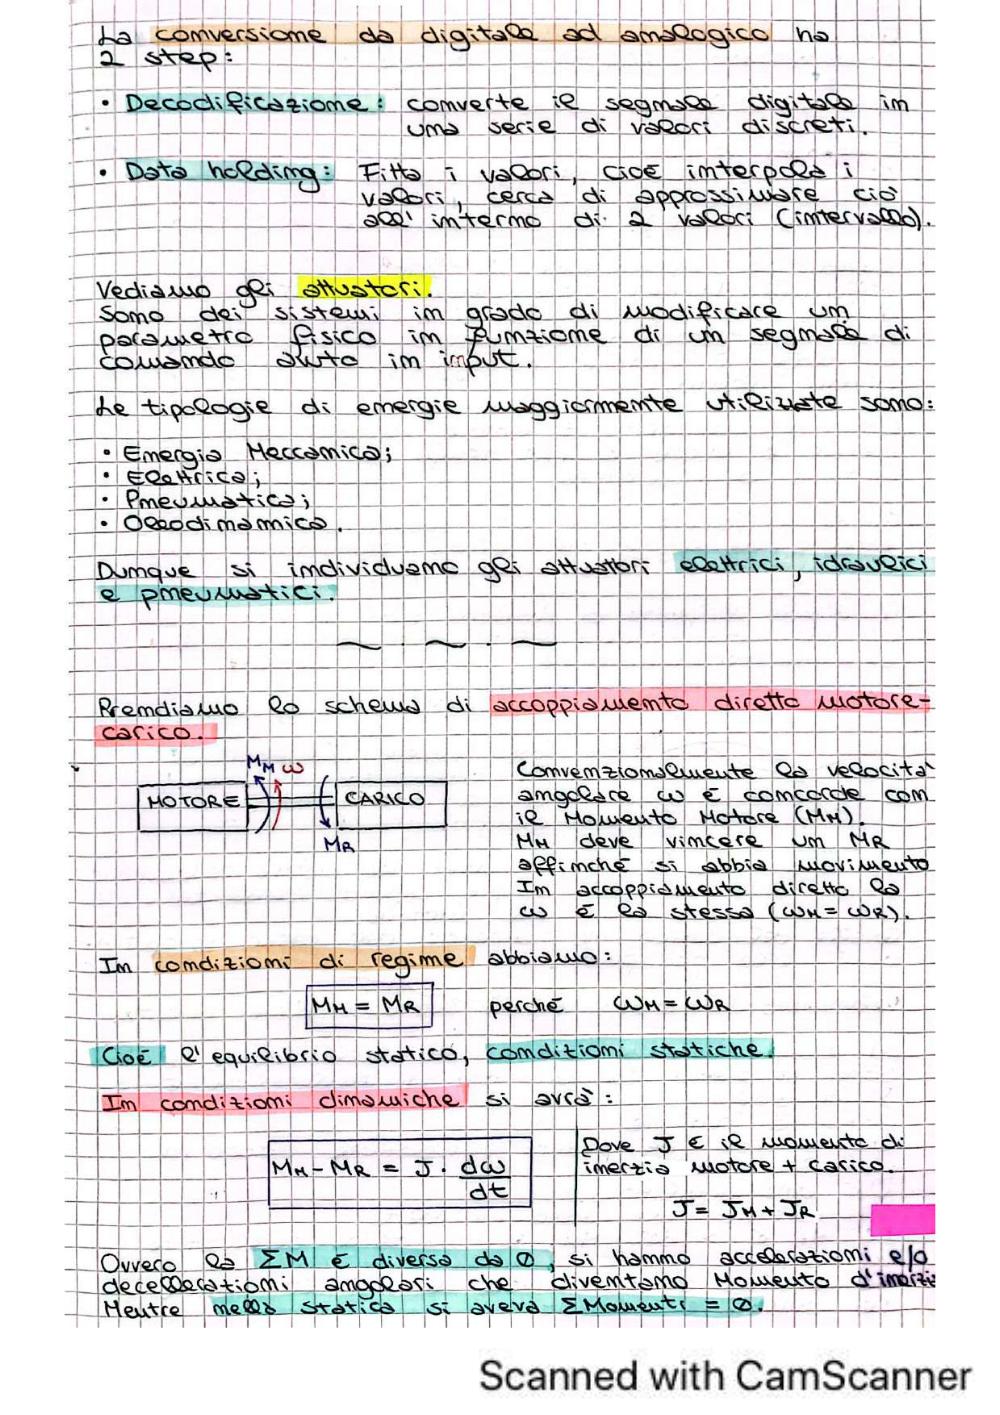 La conversione da digitale ad analogico ha
2 step:
• Decodificazione: converte il segnale digitale in
una serie di valori discreti.
• Data holding: Fitta i valori, cioè interpola i
valori, cerca di approssimare ciò
all'interno di 2 valori (intervallo).
Vediamo gli attuatori.
Sono dei sistemi in grado di modificare un
parametro fisico in funzione di un segnale di
comando avuto in input.
Le tipologie di energie maggiormente utilizzate sono:
• Energia Meccanica;
• Elettrica;
• Pneumatica;
• Oleodinamica.
Dunque si individuano gli attuattori elettrici, idraulici
e pneumatici.
Prendiamo lo schema di accoppiamento diretto motore-
carico.
MM ω
MOTORE CARICO
MR
Convenzionalmente la velocità
angolare ω è concorde con
il Momento Motore (MM).
MM deve vincere un MR
affinché si abbia movimento
In accoppiamento diretto la
ω è la stessa (ωM = ωR).
In condizioni di regime abbiamo:
MM = MR perché ωM = ωR
Cioè l'equilibrio statico, condizioni statiche.
In condizioni dinamiche si avrà:
MM - MR = J · dω/dt
Dove J è il momento di
inerzia motore + carico.
J = JM + JR
Ovvero la ΣM è diversa da 0, si hanno accelerazioni e/o
decellerazioni angolari che diventano Momento d'inerzia
Mentre nella statica si aveva ΣMomenti = 0.
Scanned with CamScanner